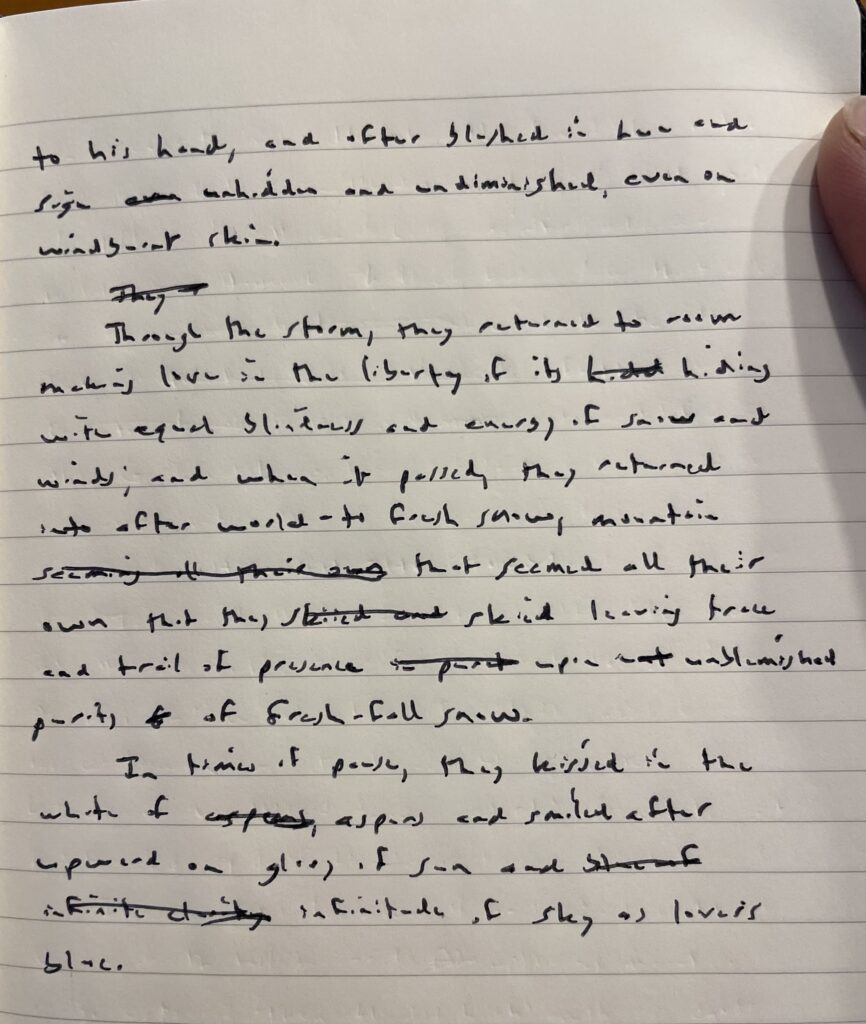 to his hand, and after blushed in hue and
sign even unhidden and undiminished, even on
windburnt skin.
They
Through the storm, they returned to room
making love in the liberty of its hidd hiding
with equal blindness and energy of snow and
winds; and when it passed, they returned
into after world - to fresh snow, mountain
seeming all their own that seemed all their
own that they skiied and skied leaving trace
and trail of presence in purit upon unblemished
purity of fresh-fall snow.
In times of pause, they kissed in the
white of aspens, aspens and smiled after
upward on glory of sun and blue of
infinite clarity infinitude of sky as lovers
blue.